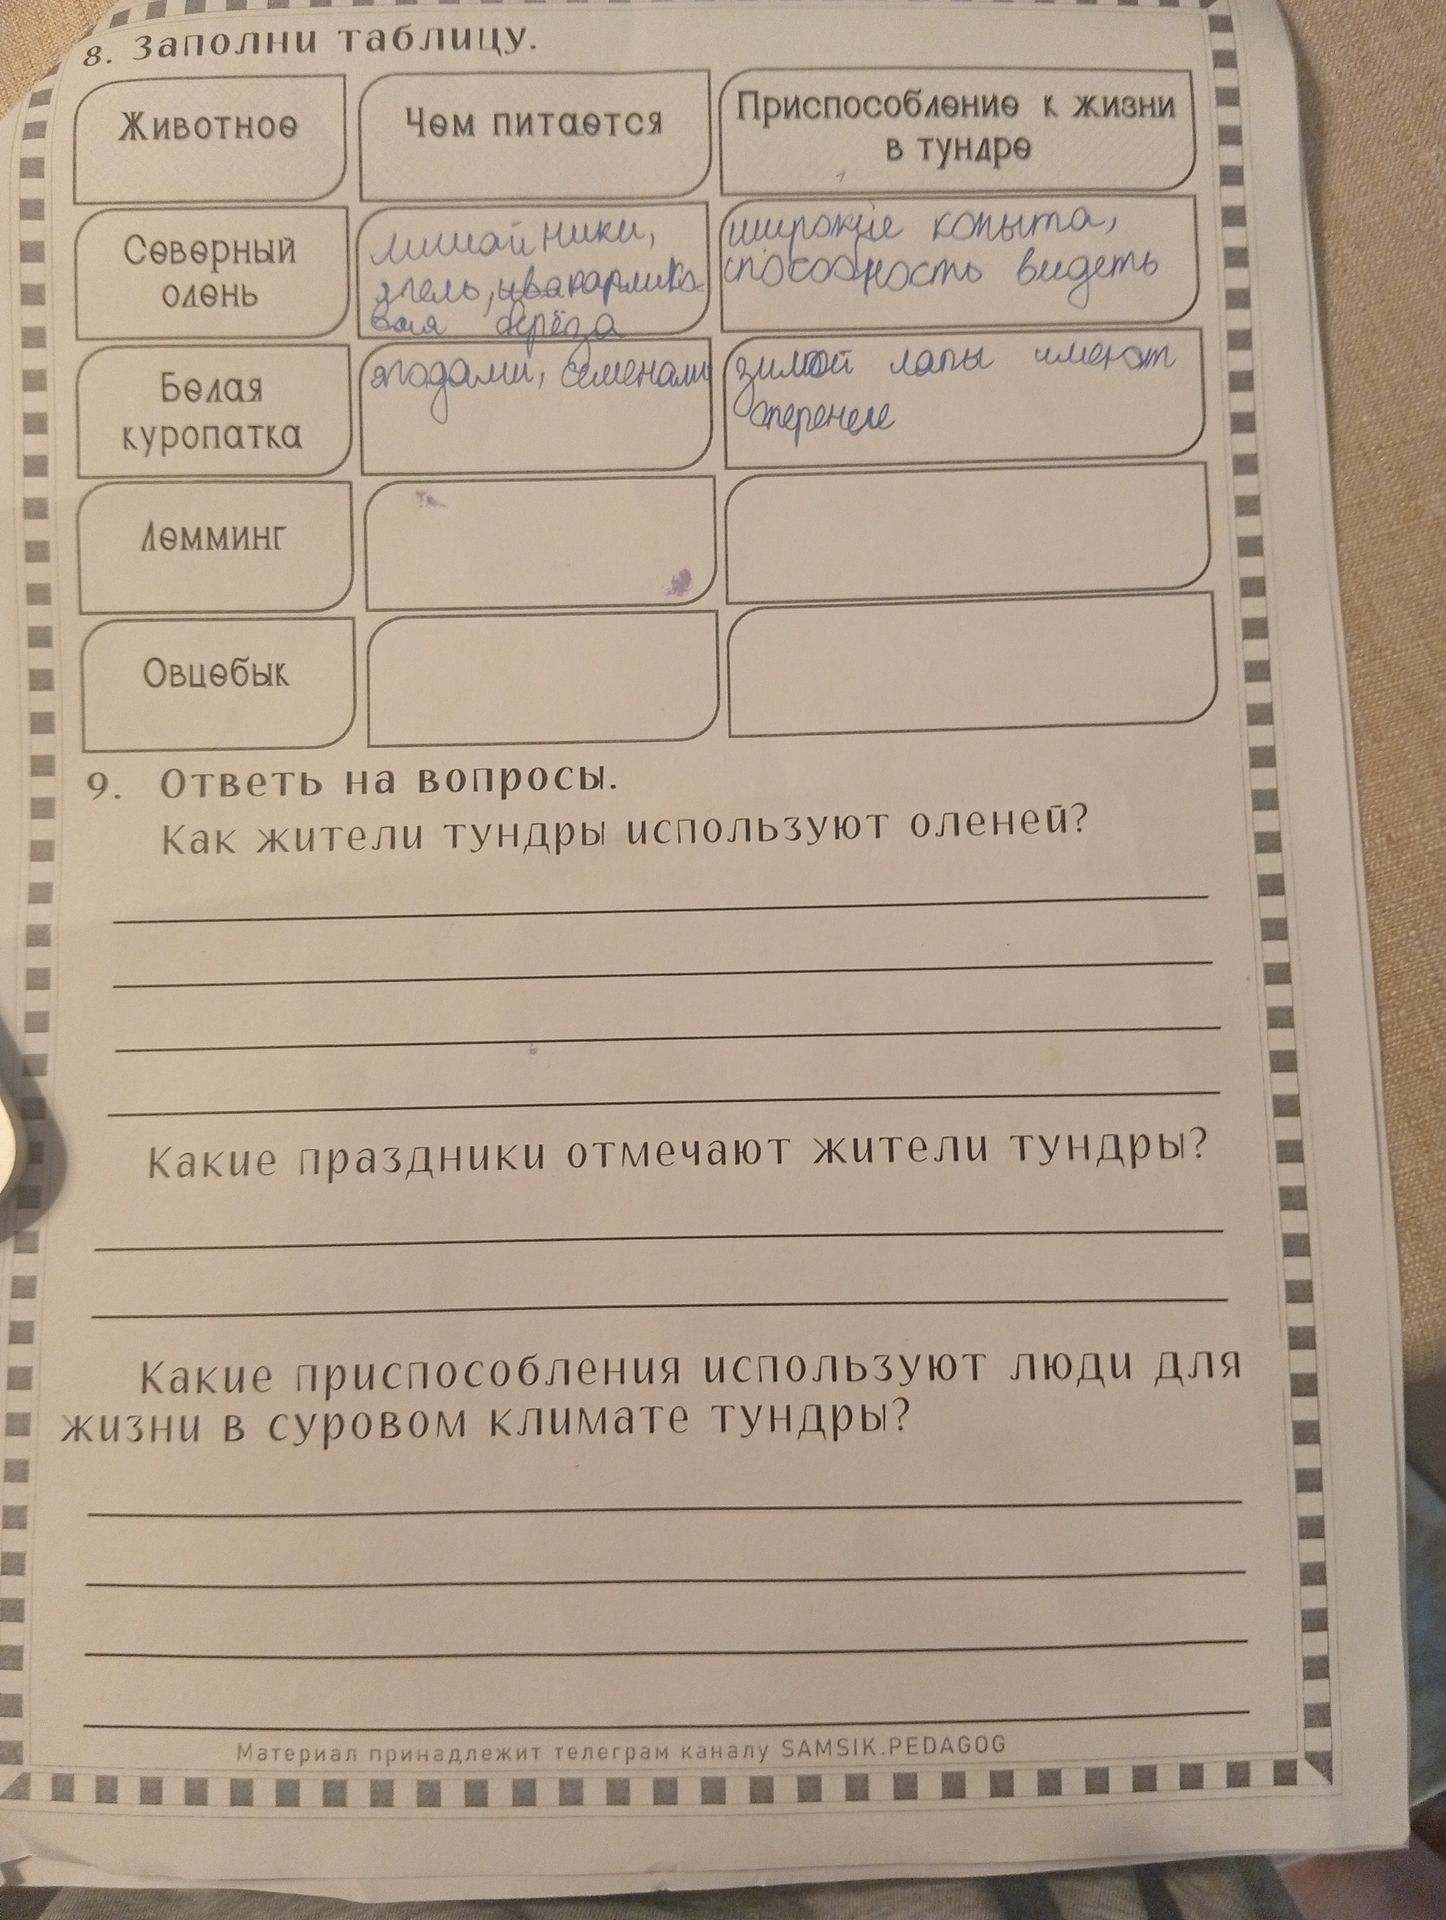 8. Заполни таблицу.
Животное
Чем питается
Приспособление к жизни
в тундре
Северный
олень
лишайники,
ягель, карлико
вая берёза
широкие копыта,
способность видеть
Белая
куропатка
ягодами, семенами
зимой лапы имеют
оперение
Лемминг
Овцебык
9. Ответь на вопросы.
Как жители тундры используют оленей?
Какие праздники отмечают жители тундры?
Какие приспособления используют люди для
жизни в суровом климате тундры?
Материал принадлежит телеграм каналу SAMSIK.PEDAGOG